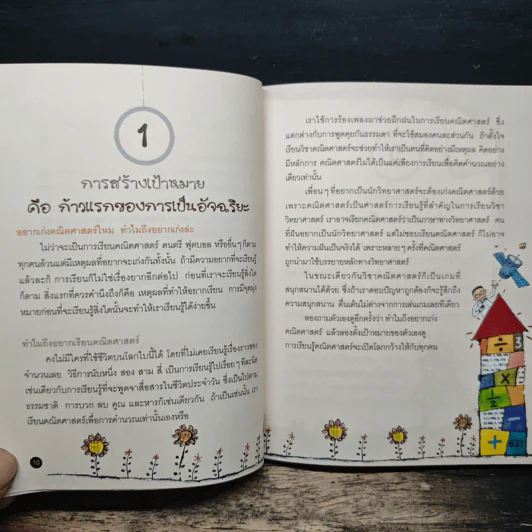 1
การสร้างเป้าหมาย
คือ ก้าวแรกของการเป็นอัจฉริยะ
อยากเก่งคณิตศาสตร์ไหม ทำไมถึงอยากเก่งล่ะ
ไม่ว่าจะเป็นการเรียนคณิตศาสตร์ ดนตรี ฟุตบอล หรืออื่นๆ ก็ตาม
ทุกคนล้วนแต่มีเหตุผลที่อยากเก่งกันทั้งนั้น ถ้ามีความอยากที่จะเรียนรู้
แล้วละก็ การเรียนก็ไม่ใช่เรื่องยากอีกต่อไป ก่อนที่เราจะเรียนรู้สิ่งใด
ก็ตาม สิ่งแรกที่ควรคำนึงถึงก็คือ เหตุผลที่ทำให้อยากเรียน การมีจุดมุ่ง
หมายก่อนที่จะเรียนรู้สิ่งใดนั้นจะทำให้เราเรียนรู้ได้ง่ายขึ้น
ทำไมถึงอยากเรียนคณิตศาสตร์
คงไม่มีใครที่ใช้ชีวิตบนโลกใบนี้ได้ โดยที่ไม่เคยเรียนรู้เรื่องราวของ
จำนวนเลย วิธีการนับหนึ่ง สอง สาม สี่ เป็นการเรียนรู้ไปเรื่อย ๆ ทีละนิด
เช่นเดียวกับการเรียนรู้ที่จะพูดจาสื่อสารในชีวิตประจำวัน ซึ่งเป็นไปตาม
ธรรมชาติ การบวก ลบ คูณ และหารก็เช่นเดียวกัน ถ้าเป็นเช่นนั้น เรา
เรียนคณิตศาสตร์เพื่อการคำนวณเท่านั้นเองหรือ
10
เราใช้การร้องเพลงมาช่วยฝึกฝนในการเรียนคณิตศาสตร์ ซึ่ง
แตกต่างกับการพูดคุยกันธรรมดา ที่จะใช้สมองคนละส่วนกัน ถ้าตั้งใจ
เรียนวิชาคณิตศาสตร์จะช่วยทำให้เราเป็นคนที่คิดอย่างมีเหตุผล คิดอย่าง
มีหลักการ คณิตศาสตร์ไม่ได้เป็นแค่เพียงการเรียนเพื่อคิดคำนวณอย่าง
เดียวเท่านั้น
เพื่อน ๆ ที่อยากเป็นนักวิทยาศาสตร์จะต้องเก่งคณิตศาสตร์ด้วย
เพราะคณิตศาสตร์เป็นศาสตร์การเรียนรู้ที่สำคัญในการเรียนวิชา
วิทยาศาสตร์ เราอาจเรียกคณิตศาสตร์ว่าเป็นภาษาทางวิทยาศาสตร์ คน
ที่ฝันอยากเป็นนักวิทยาศาสตร์ แต่ไม่ชอบเรียนคณิตศาสตร์ ก็ไม่อาจ
ทำให้ความฝันเป็นจริงได้ เพราะหลายๆ ครั้งที่คณิตศาสตร์
ถูกนำมาใช้บรรยายหลักทางวิทยาศาสตร์
ในขณะเดียวกันวิชาคณิตศาสตร์ก็เป็นเกมที่
สนุกสนานได้ด้วย ซึ่งถ้าเราตอบปัญหาถูกต้องก็จะรู้สึกถึง
ความสนุกสนาน ตื่นเต้นไม่ต่างจากการเล่นเกมเลยทีเดียว
ลองถามตัวเองดูอีกครั้งว่า ทำไมถึงอยากเก่ง
คณิตศาสตร์ แล้วลองตั้งเป้าหมายของตัวเองดู
การเรียนรู้คณิตศาสตร์จะเปิดโลกกว้างให้กับทุกคน
÷ 3
×
1/2
+